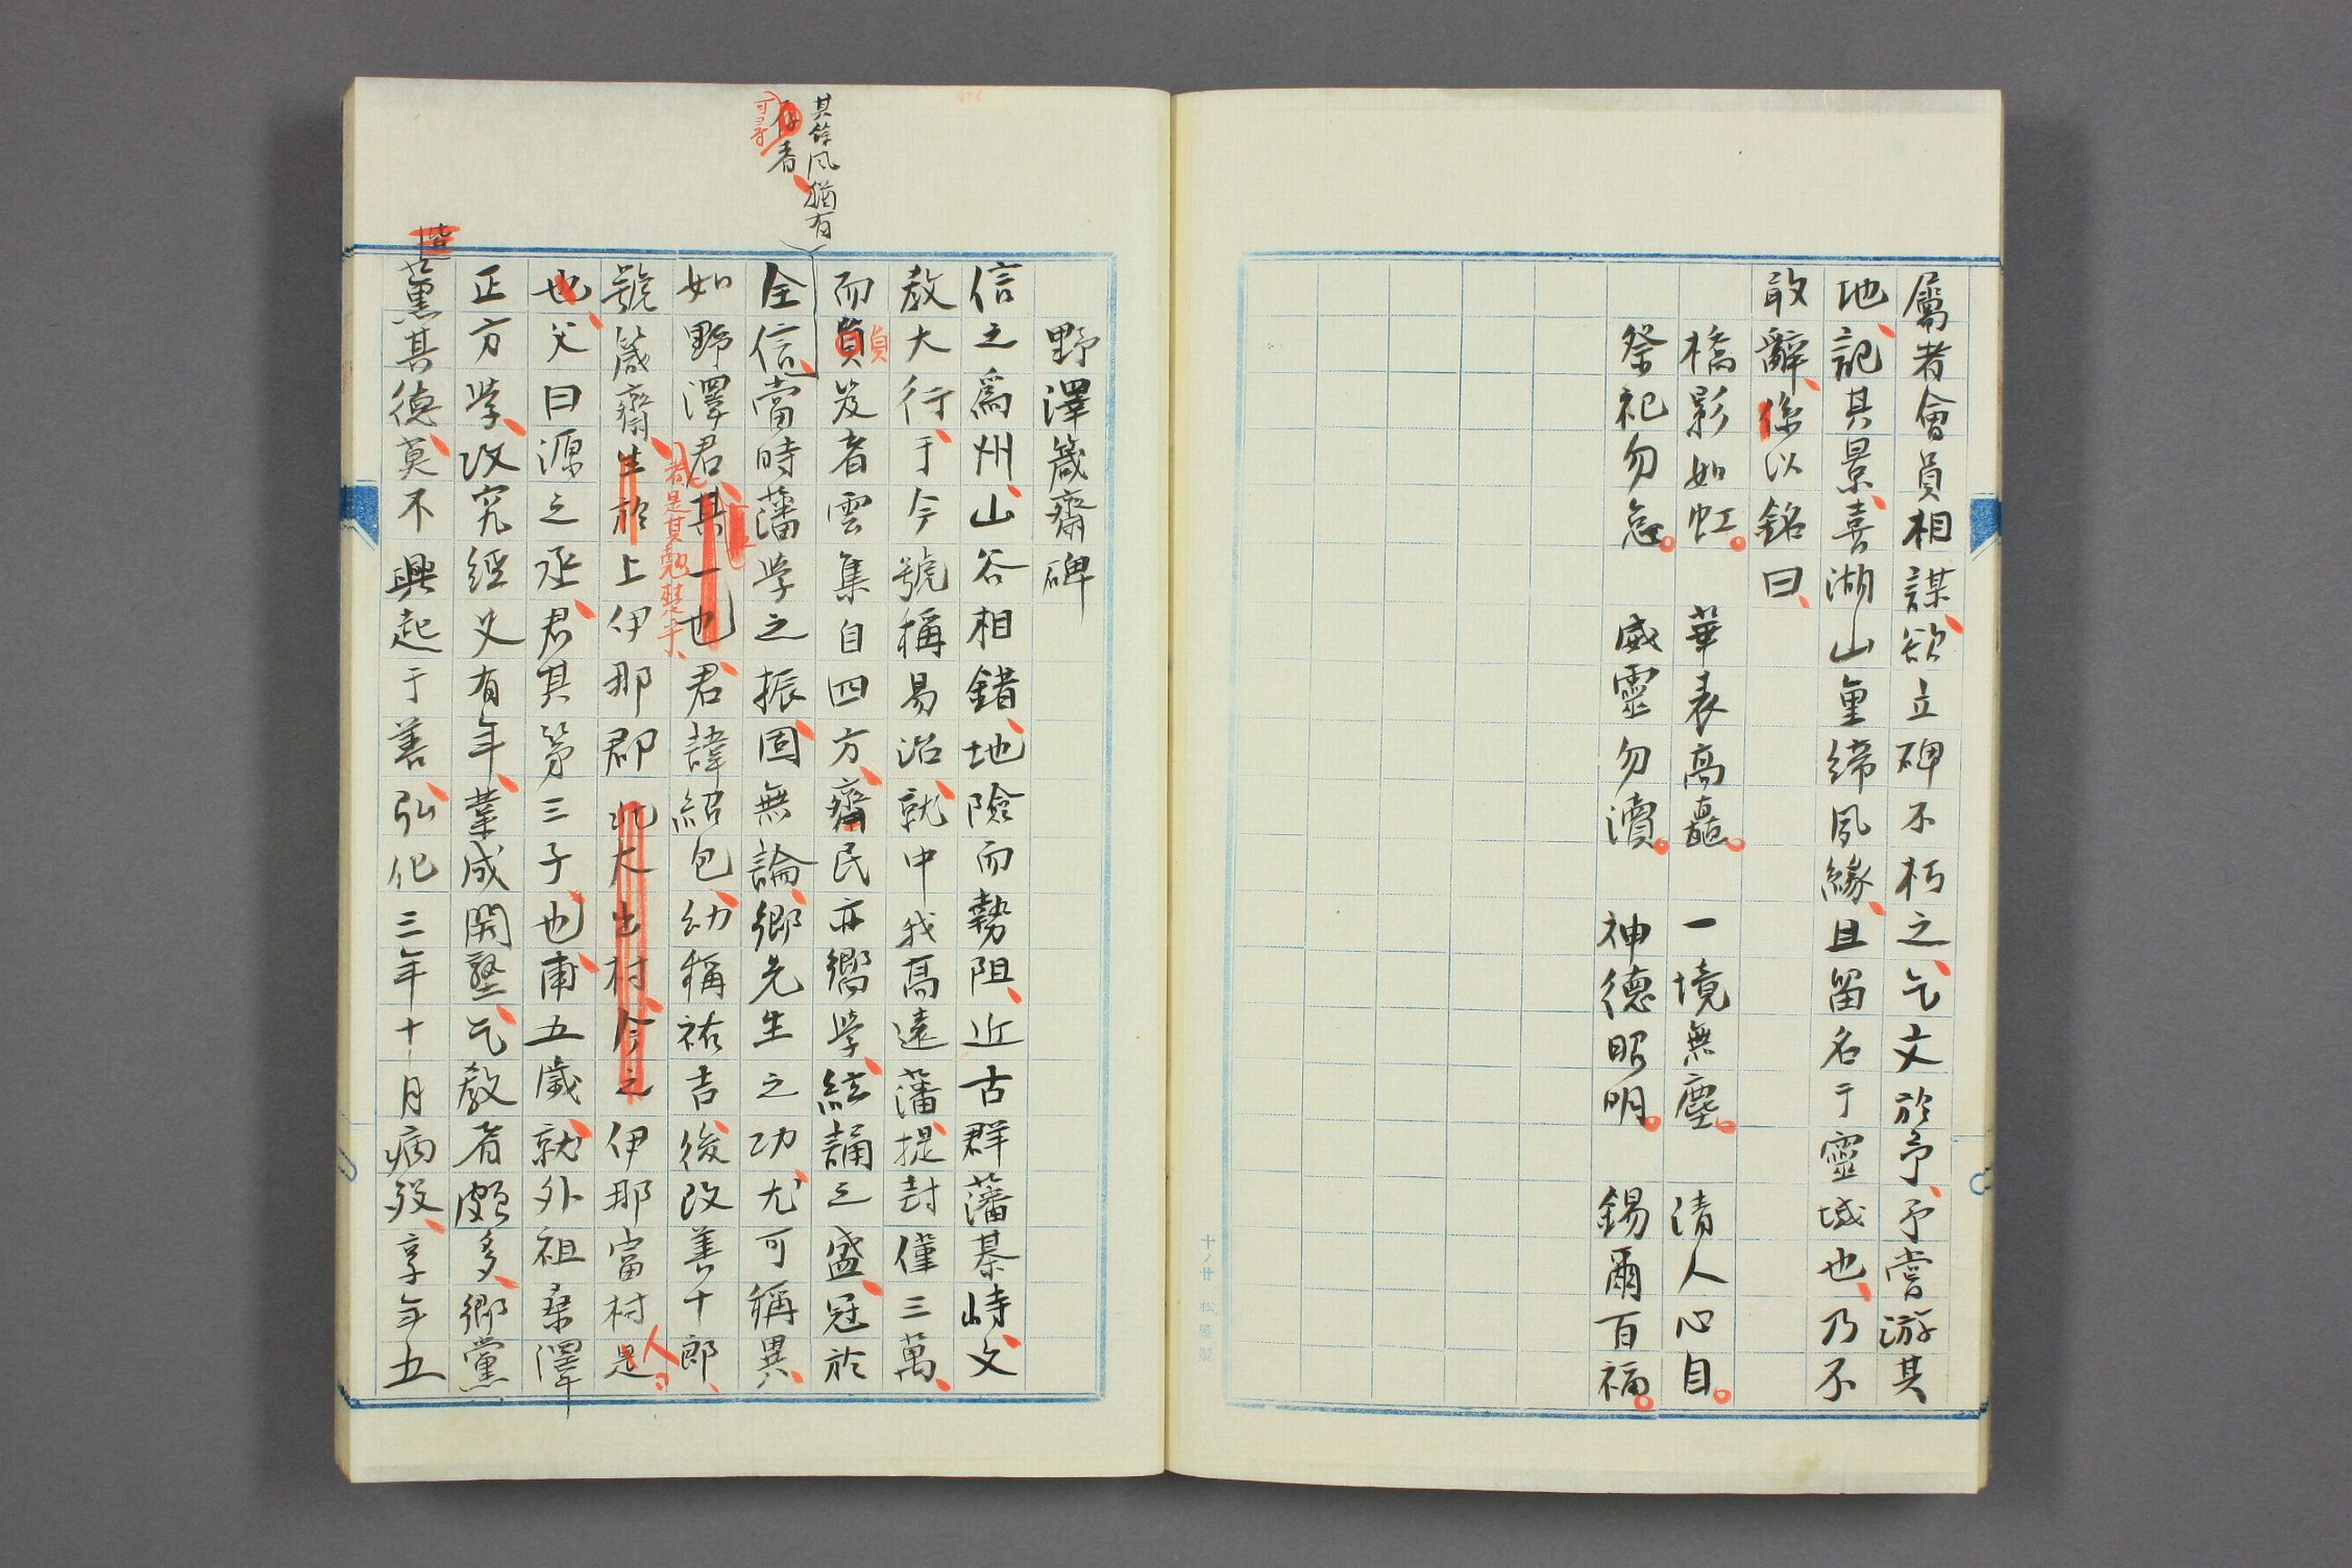 屬者會員相謀欲立碑不朽之乞文於予予嘗游其
地記其景喜湖山重締夙緣且留名于靈域也乃不
敢辭係以銘曰
橋影如虹。華表高矗。一境無塵。清人心目。
祭祀勿怠。威靈勿瀆。神德昭明。錫爾百福。
野澤箴齋碑
信之爲州山谷相錯地險而勢阻近古群藩棊峙文
教大行于今號稱易治就中我高遠藩提封僅三萬
而負笈者雲集自四方齋民亦嚮學絃誦之盛冠於
全信當時藩学之振固無論鄉先生之功尤可稱異
其餘風猶有
存者
可尋
如野澤君其一也君諱紹包幼稱祐吉後改善十郎
者是其
號箴齋生於上伊那郡北大出村今之伊那富村是
人
也父曰源之丞君其第三子也甫五歲就外祖桑澤
正方学攻究經史有年業成開塾乞教者頗多鄉黨
皆
薰其德莫不興起于善弘化三年十月病歿享年五